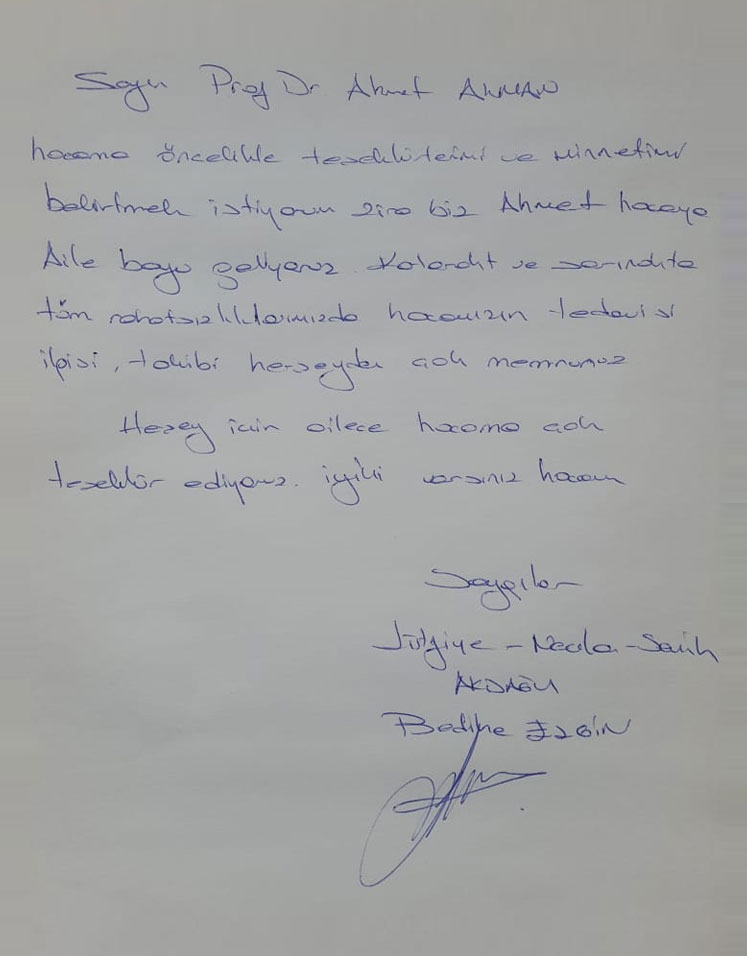 Sayın Prof Dr. Ahmet AKMAN
hocama öncelikle teşekkürlerimi ve minnetimi
belirtmek istiyorum zira biz Ahmet hocaya
Aile boyu geliyoruz. Katarakt ve sarındıkta
tüm rahatsızlıklarımızda hocamızın tedavisi
ilgisi, takibi herşeyden çok memnunuz
Herşey için ailece hocama çok
teşekkür ediyoruz. iyiki varsınız hocam
Saygılar
Lütfiye - Necla - Salih
AKDAĞLI
Bedihe EZGİN